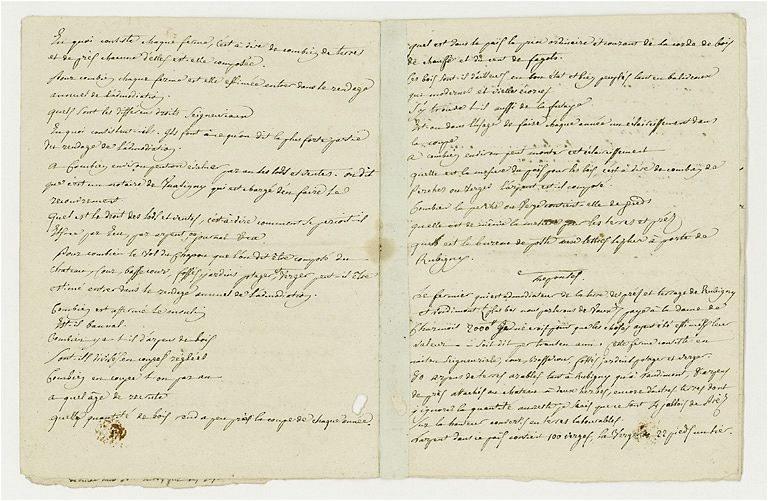 En quoi consiste chaque ferme, C'est à dire de combien de terres
et de prés chacune d'elles est-elle composée.
Pour combien chaque ferme est elle estimée entrer dans le rendage
annuel de l'admodiation.
Quels sont les differens droits Seigneuriaux
En quoi consistent-ils. Ils font à ce qu'on dit la plus forte partie
du rendage de l'admodiation.
A Combien peut-on évaluer par an les lods et ventes. on dit
que c'est un notaire de qui est chargé d'en faire le
recouvrement.
Quel est le droit des lods et ventes, c'est à dire comment se perçoit-il
Pour combien le lot du que l'on dit être composé du
chateau, Cour, basse cour, fossés, jardins potager, Verger peut-il être
estimé entrer dans le rendage annuel de l'admodiation.
Combien est affermé le moulin
Est-il bannal.
Combien y a-t-il d'arpens de bois
Sont-ils divisés en coupes réglées
Combien en coupe t'on par an
a quel âge de recrute
quelle quantité de bois rend a peu près la coupe de chaque année.
quel est dans le païs le prix ordinaire et courant de la corde de bois
de chauffe et du cent de fagots.
Ces bois sont-ils d'ailleurs en bon état et bien peuplés tant en baliveaux
que modernes et vielles écorces
S'y trouve t-il aussi de la futaye
Est-on dans l'usage de faire chaque année un éclaircissement dans
la coupe
a combien environ peut monter cet éclaircissement
quelle est la mesure du païs pour les bois, c'est à dire de combien de
Perches ou Verges l'arpent est-il composé
Combien la perche ou Verge contient-elle de pieds
quelle est de même la mesure pour les terres et prés
quel est le bureau de poste où les lettres à porte de
Rubigny.
Réponses
Le fermier qui est admodiateur de la terre des prés et terrage de Rubigny
et Vadimont (plus bas nous parlerons de Vaux) paye à la dame de
2000# Je ne crois pas que les choses ayent été estimées leur
valeur soit dit par ami; cette ferme consiste en
maison seigneuriale, cour, basse cour, fossés, jardins potager et verger.
80 arpens de terres arables tant à Rubigny qu'à Vadimont, d'arpens
de prés attachés au chateau à deux herbes, encore d'autres terres dont
j'ignore la quantité au reste, je sais que ce sont 14 jallois de Prés
sur la hauteur convertis en terres labourables
L'arpent dans ce païs contient 100 verges, la Verge de 22 pieds